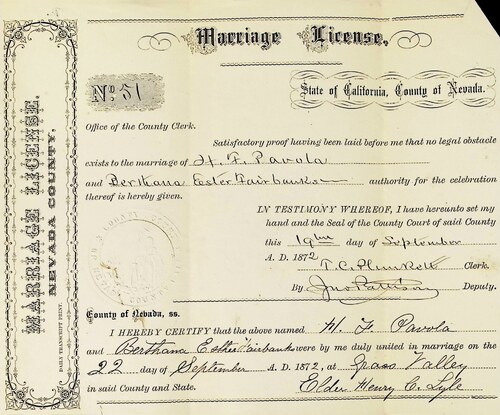 Marriage License,
No 51
State of California, County of Nevada.
Office of the County Clerk.
Satisfactory proof having been laid before me that no legal obstacle
exists to the marriage of H. F. Pavola
and Berthana Ester Fairbanks authority for the celebration
thereof is hereby given.
IN TESTIMONY WHEREOF, I have hereunto set my
hand and the Seal of the County Court of said County
this 19th day of September
A. D. 1872
T. C. Plunkett Clerk.
By Jno Pattison Deputy.
County of Nevada, ss.
I HEREBY CERTIFY that the above named H. F. Pavola
and Berthana Esther Fairbanks were by me duly united in marriage on the
22 day of September A. D. 1872, at Grass Valley
in said County and State. Elder Henry C. Lyle
MARRIAGE LICENSE.
NEVADA COUNTY.
DAILY TRANSCRIPT PRINT.